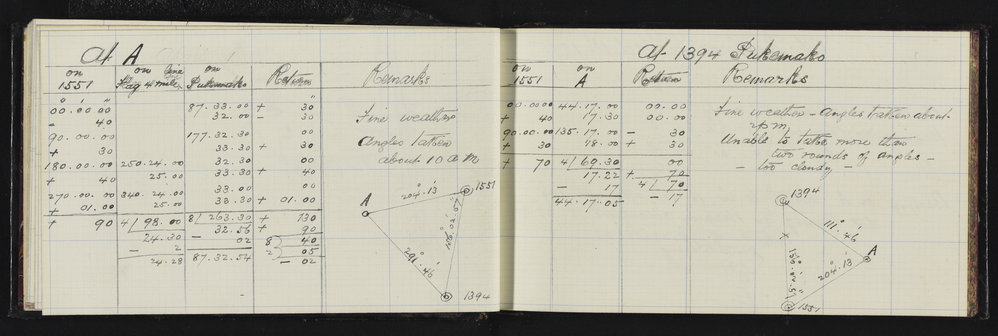 At A
on 1551 | on Flag 4 mile | on Pukemako | Return | Remarks
° ' "
00.00.00 | 87.33.00 | + 30
- 40 | 32.00 | - 30
90.00.00 | 177.32.30 | 00
+ 30 | 33.30 | + 30
180.00.00 | 250.24.00 | 32.30 | 00
+ 40 | 25.00 | 33.30 | + 40
270.00.00 | 340.24.00 | 33.00 | 00
+ 01.00 | 25.00 | 33.30 | + 01.00
+ 90 | 4 | 98.00 | 8 | 263.30 | + 130
24.30 | 32.56 | + 90
- 2 | - 02 | 8 | 40
24.28 | 87.32.54 | 2 | 05
- 02
Fine weather
Angles taken
about 10 a m
1551
204°.13'
A
291°.46'
1394
At 1394 Pukemako
on 1551 | on A | Return | Remarks
00.00.00 | 44.17.00 | 00.00
+ 40 | 17.30 | 00.00
90.00.00 | 135.17.00 | - 30
+ 30 | 18.00 | + 30
+ 70 | 4 | 69.30 | 00
17.22 | + 70
- 17 | 4 | 70
44.17.05 | - 17
Fine weather - Angles taken about
2 p m,
Unable to take more than
two rounds of angles -
- too cloudy -
1394
111°.46'
A
204°.13'
1551